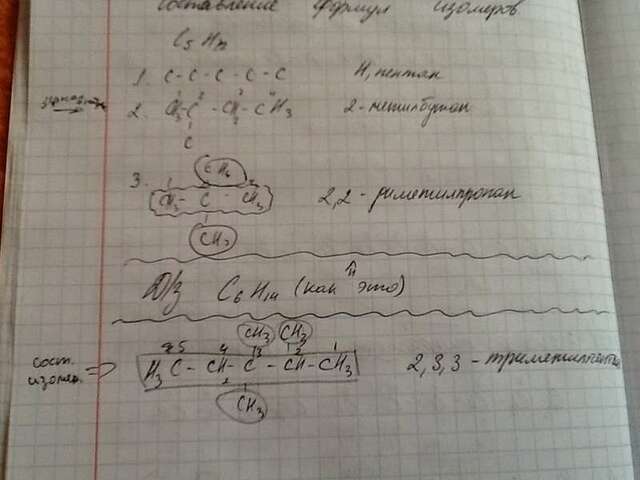 составление формул изомеров
C5 H12
1. C - C - C - C - C Н, пентан
2. CH3 - C - CH2 - CH3 2-метилбутан
1 2 3 4
C
CH3
3. CH3 - C - CH3 2,2-диметилпропан
CH3
Д/з C6 H14 (как это)
CH3 CH3
сост. изомер. => H3C - CH - C - CH - CH3 2,3,3-триметилпентан
5 4 3 2 1
2
CH3